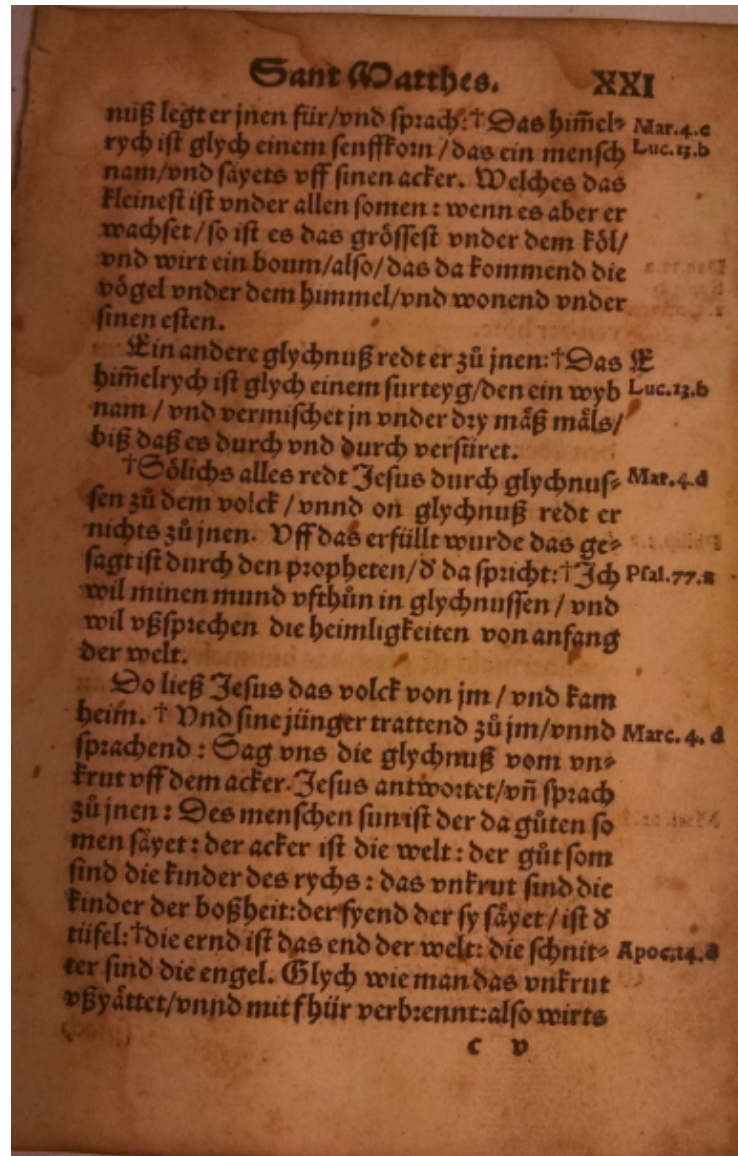 Sant Matthes. XXI
nuß legt er jnen für/vnd sprach:†Das him̃el⸗ Mar.4.c
rych ist glych einem senffkorn/das ein mensch Luc.13.b
nam/vnd såyets vff sinen acker. Welches das
kleinest ist vnder allen somen: wenn es aber er
wachset/so ist es das grössest vnder dem köl/
vnd wirt ein boum/also/das da kommend die
vögel vnder dem himmel/vnd wonend vnder
sinen esten.
Ein andere glychnuß redt er zů jnen:†Das E
him̃elrych ist glych einem surteyg/den ein wyb Luc.13.b
nam/vnd vermischet jn vnder dry måß måls/
biß daß es durch vnd durch versüret.
†Sölichs alles redt Jesus durch glychnus⸗ Mar.4.d
sen zů dem volck/vnnd on glychnuß redt er
nichts zů jnen. Vff das erfüllt wurde das ge⸗
sagt ist durch den propheten/d̕ da spricht:†Jch Psal.77.a
wil minen mund vfthůn in glychnussen/vnd
wil vßsprechen die heimligkeiten von anfang
der welt.
Do ließ Jesus das volck von jm/vnd kam
heim. † Vnd sine jünger trattend zů jm/vnnd Marc.4.d
sprachend: Sag vns die glychnuß vom vn⸗
krut vff dem acker. Jesus antwortet/vñ sprach
zů jnen: Des menschen sun ist der da gůten so
men såyet: der acker ist die welt: der gůt som
sind die kinder des rychs: das vnkrut sind die
kinder der boßheit:der fyend der sy såyet/ist d̕
tüfel:†die ernd ist das end der welt: die schnit⸗ Apoc.14.d
ter sind die engel. Glych wie man das vnkrut
vßyåttet/vnnd mit fhür verbrennt:also wirts
c v